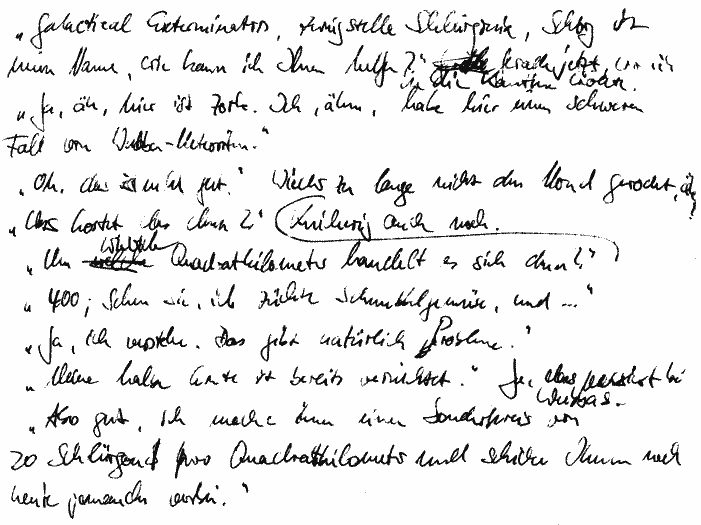 "Galactical Exterminators, Schlürgonia, ist
mein Name, wie kann ich Ihnen helfen?" jetzt, wo ich
in die Kantine wollte.
"Ja, äh, hier ist Zork. Ich, ähm, habe hier einen schweren
Fall von Wubba-Meteoriten."
"Oh, das ist nicht gut." zu lange nicht den Mond gerockt, äh?
"Was kostet das denn?" Knibberig auch noch.
"Um wieviele Quadratkilometer handelt es sich denn?"
"400; sehen Sie, ich züchte Schunkelgemüse, und ..."
"Ja, ich verstehe. Das gibt natürlich Probleme."
"Meine halbe Ernte ist bereits vernichtet." Ja, das passiert bei
Wubbas.
"Also gut, ich mache Ihnen einen Sonderpreis von
20 pro Quadratkilometer und schicke Ihnen noch
heute jemanden vorbei."